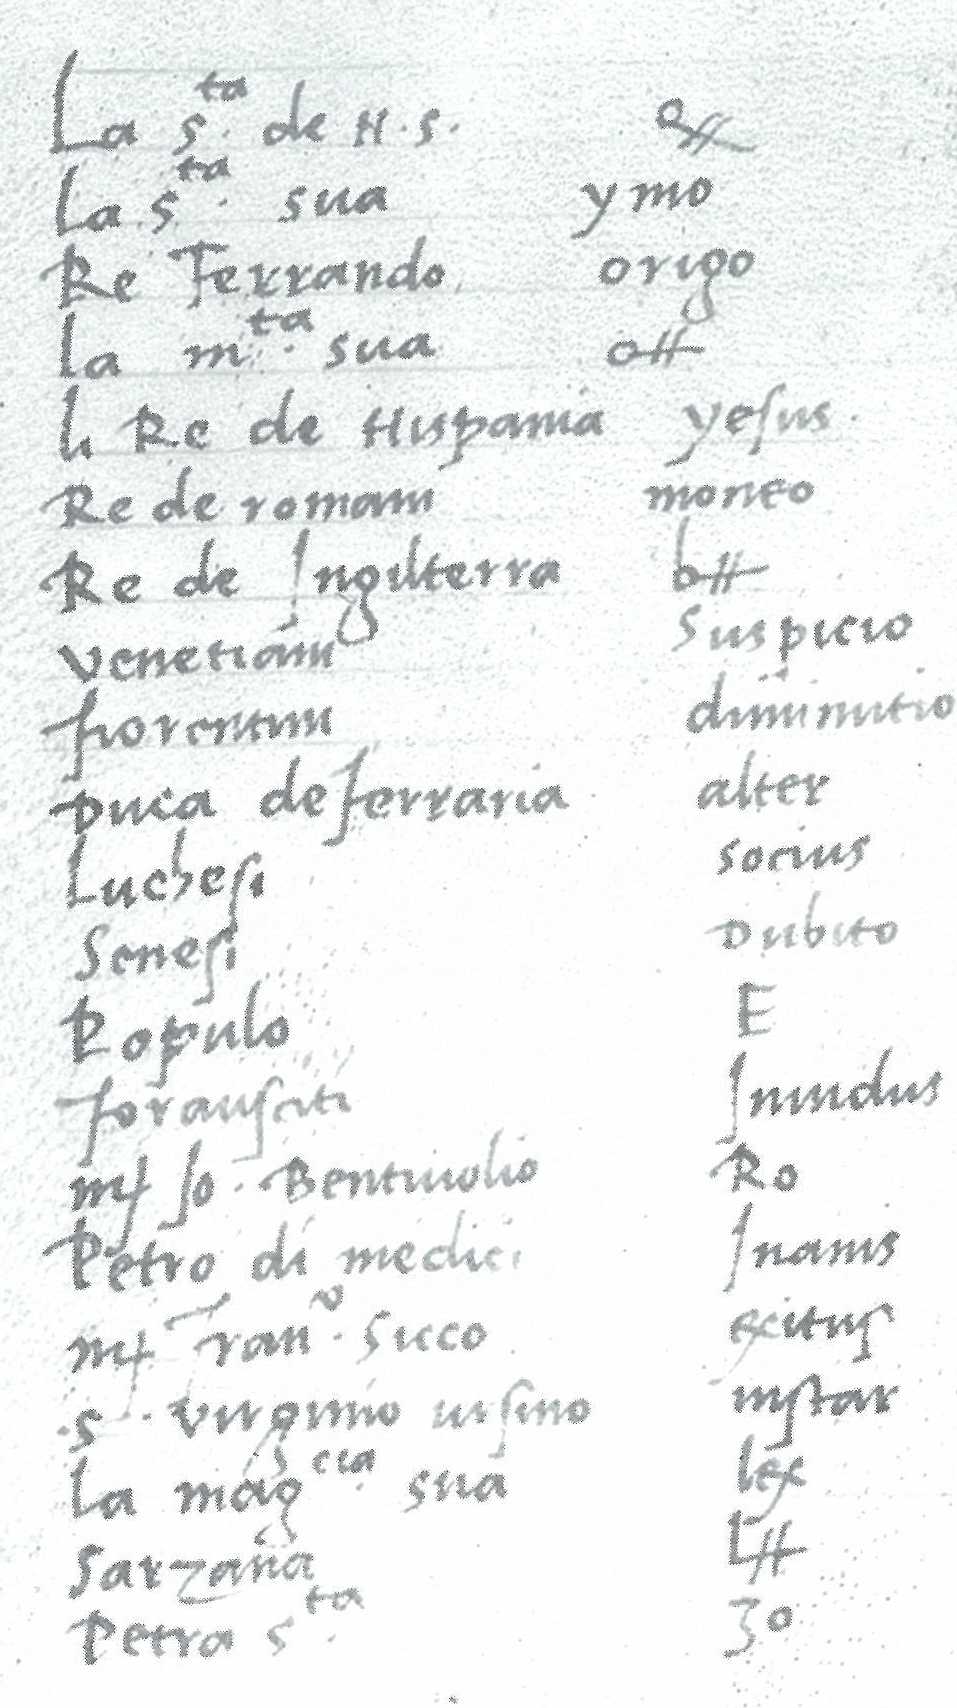 La s.ta de N. S.
La s.ta sua ymo
Re Ferrando origo
la m.ta sua
li Re de Hispania yesus
Re de romani moneo
Re de Ingilterra
venetiani suspicio
fiorentini diminutio
Duca de ferraria alter
Luchesi socius
Senesi Dubito
Populo E
forausciti
Io. Bentivolio Ro
Petro di medici Inanis
Fran.o Sicco exitus
s. virginio ursino instar
la mag.cia sua lex
Sarzana
Petra s.ta 30